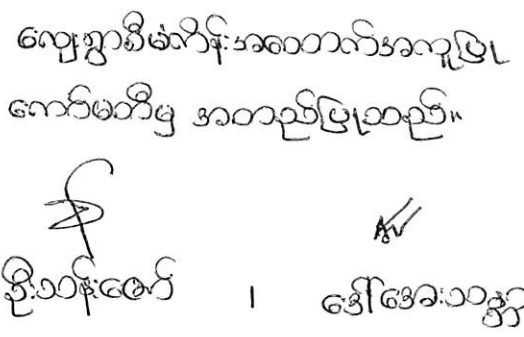 လျှေစွာစီမံကိန်းအထောက်အကူပြု
ကော်မတီမှ အတည်ပြုသည်။
ဦးသန်းဇော် ၊ ဒေါ်အေးသန္တာ